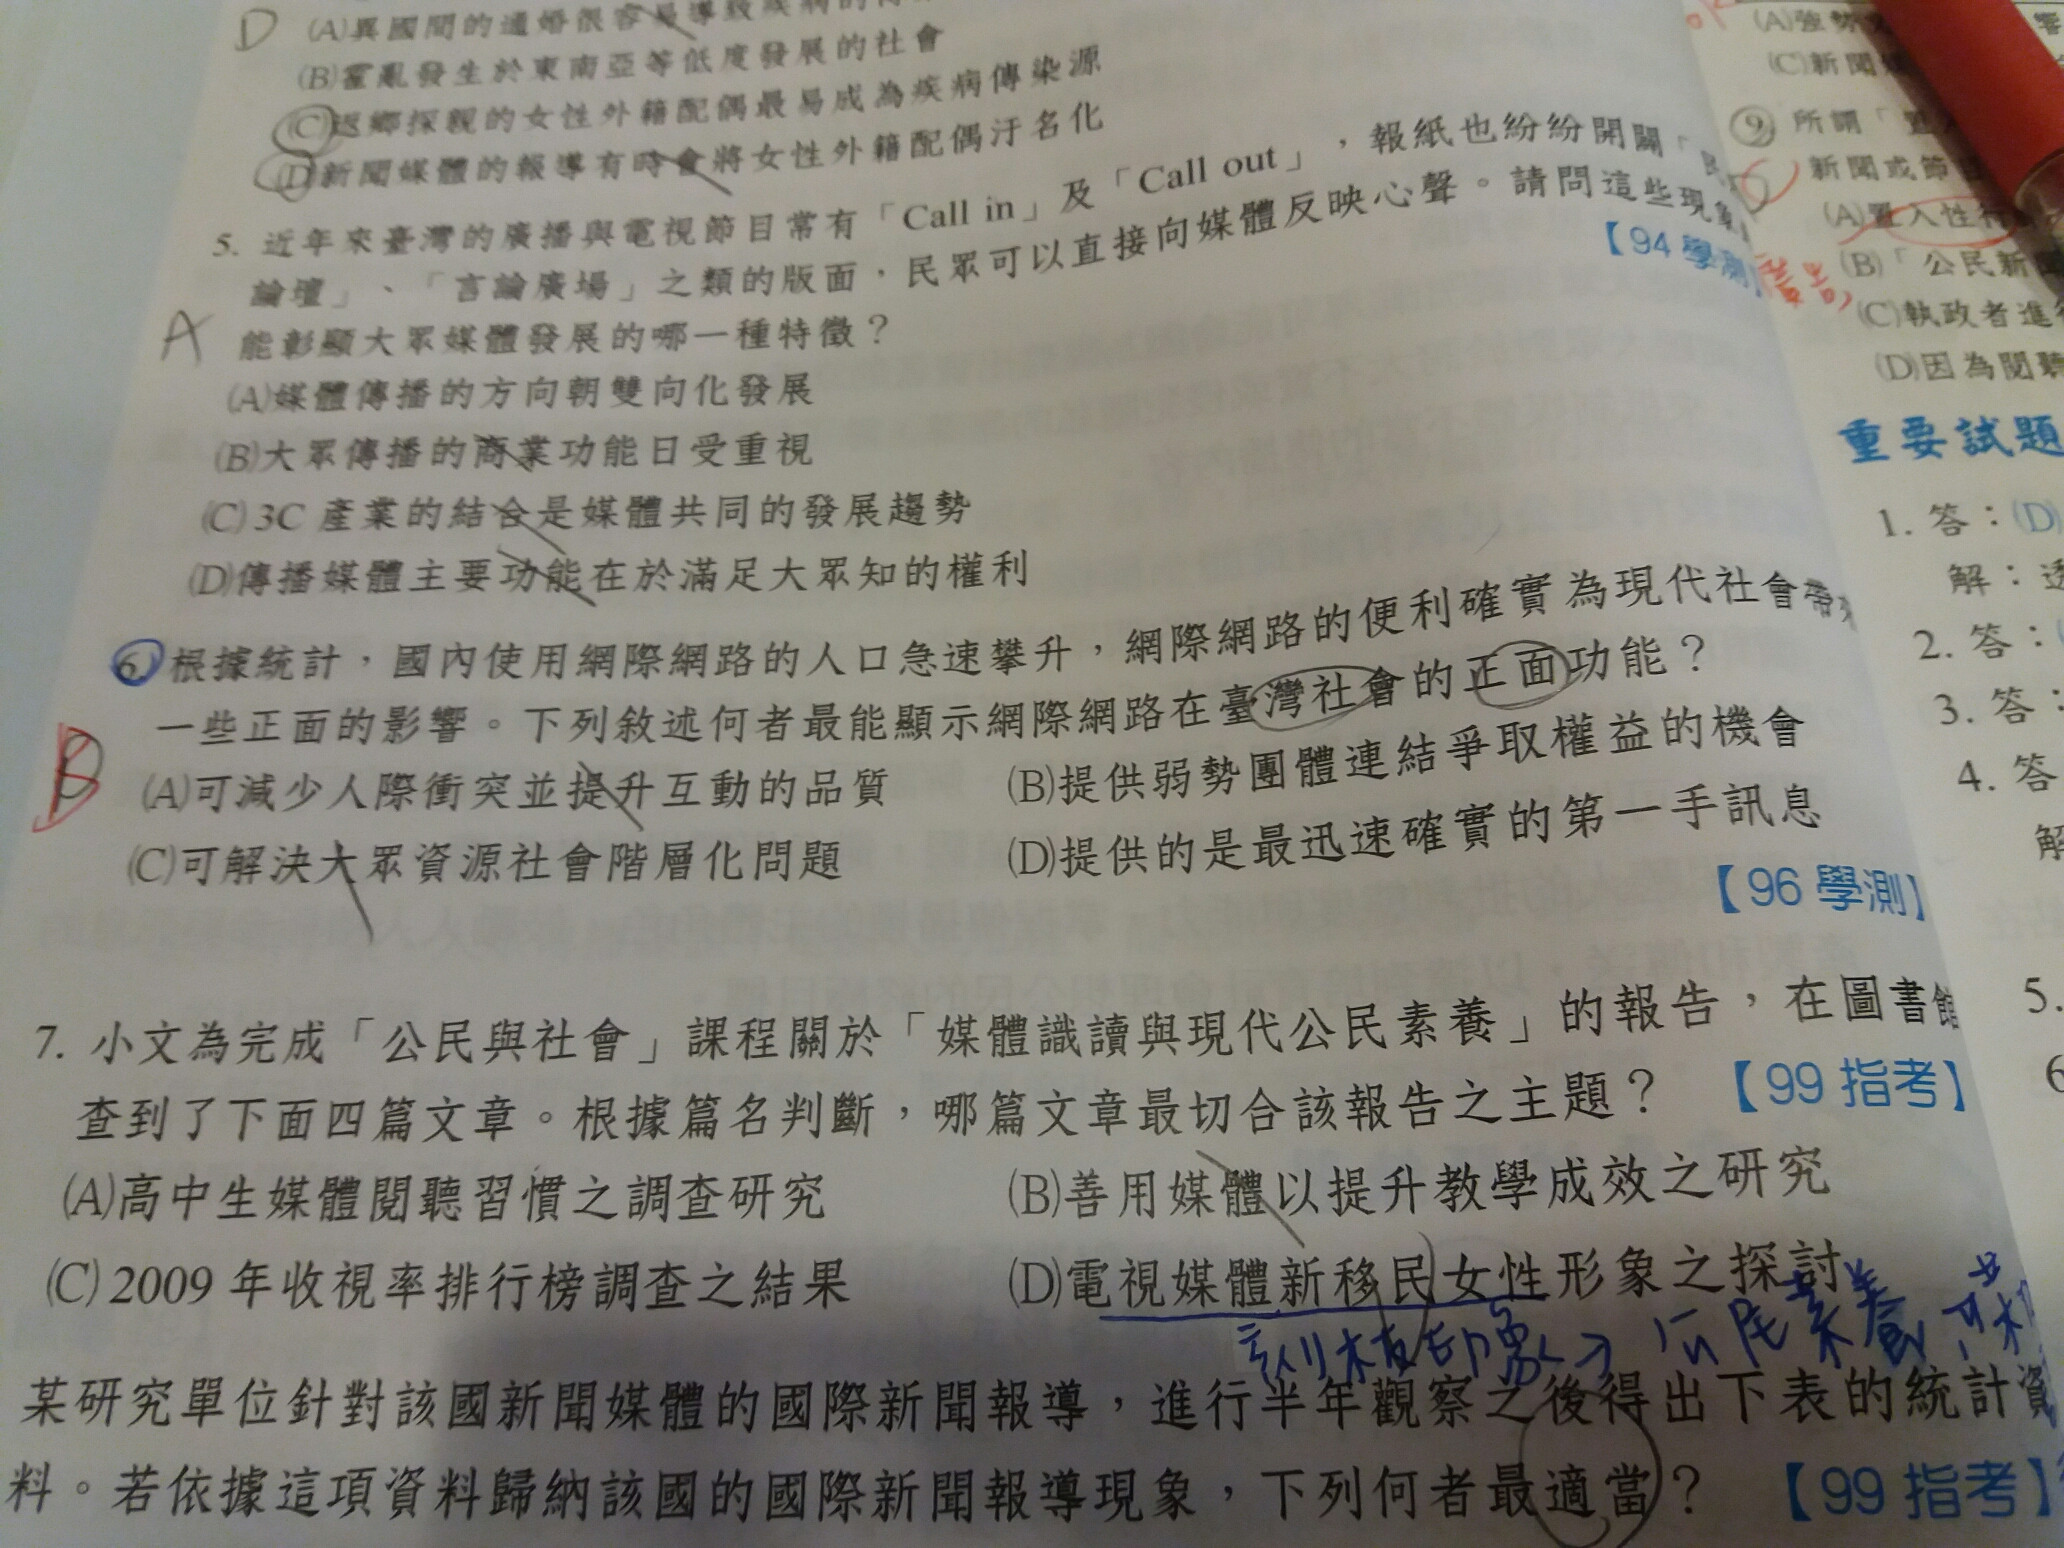 D
(A)異國間的通婚很容易導致疾病的
(B)霍亂發生於東南亞等低度發展的社會
(C)返鄉探親的女性外籍配偶最易成為疾病傳染源
(D)新聞媒體的報導有時會將女性外籍配偶汙名化
5. 近年來臺灣的廣播與電視節目常有「Call in」及「Call out」,報紙也紛紛開闢「民
論壇」、「言論廣場」之類的版面,民眾可以直接向媒體反映心聲。請問這些現象
能彰顯大眾媒體發展的哪一種特徵?
【94 學測】
A
(A)媒體傳播的方向朝雙向化發展
(B)大眾傳播的商業功能日受重視
(C) 3C 產業的結合是媒體共同的發展趨勢
(D)傳播媒體主要功能在於滿足大眾知的權利
6. 根據統計,國內使用網際網路的人口急速攀升,網際網路的便利確實為現代社會帶來
一些正面的影響。下列敘述何者最能顯示網際網路在臺灣社會的正面功能?
B
(A)可減少人際衝突並提升互動的品質 (B)提供弱勢團體連結爭取權益的機會
(C)可解決大眾資源社會階層化問題 (D)提供的是最迅速確實的第一手訊息
【96 學測】
7. 小文為完成「公民與社會」課程關於「媒體識讀與現代公民素養」的報告,在圖書館
查到了下面四篇文章。根據篇名判斷,哪篇文章最切合該報告之主題? 【99 指考】
(A)高中生媒體閱聽習慣之調查研究 (B)善用媒體以提升教學成效之研究
(C) 2009 年收視率排行榜調查之結果 (D)電視媒體新移民女性形象之探討
刻板印象→公民素養
某研究單位針對該國新聞媒體的國際新聞報導,進行半年觀察之後得出下表的統計資
料。若依據這項資料歸納該國的國際新聞報導現象,下列何者最適當? 【99 指考】
(A)強勢
(C)新聞
9 所謂「置
新聞或節
(A)置入性行
(B)「公民新聞
廣告
(C)執政者進行
(D)因為閱聽
重要試題
1. 答:(D)
解:透
2. 答:(
3. 答:
4. 答
解
5.
6